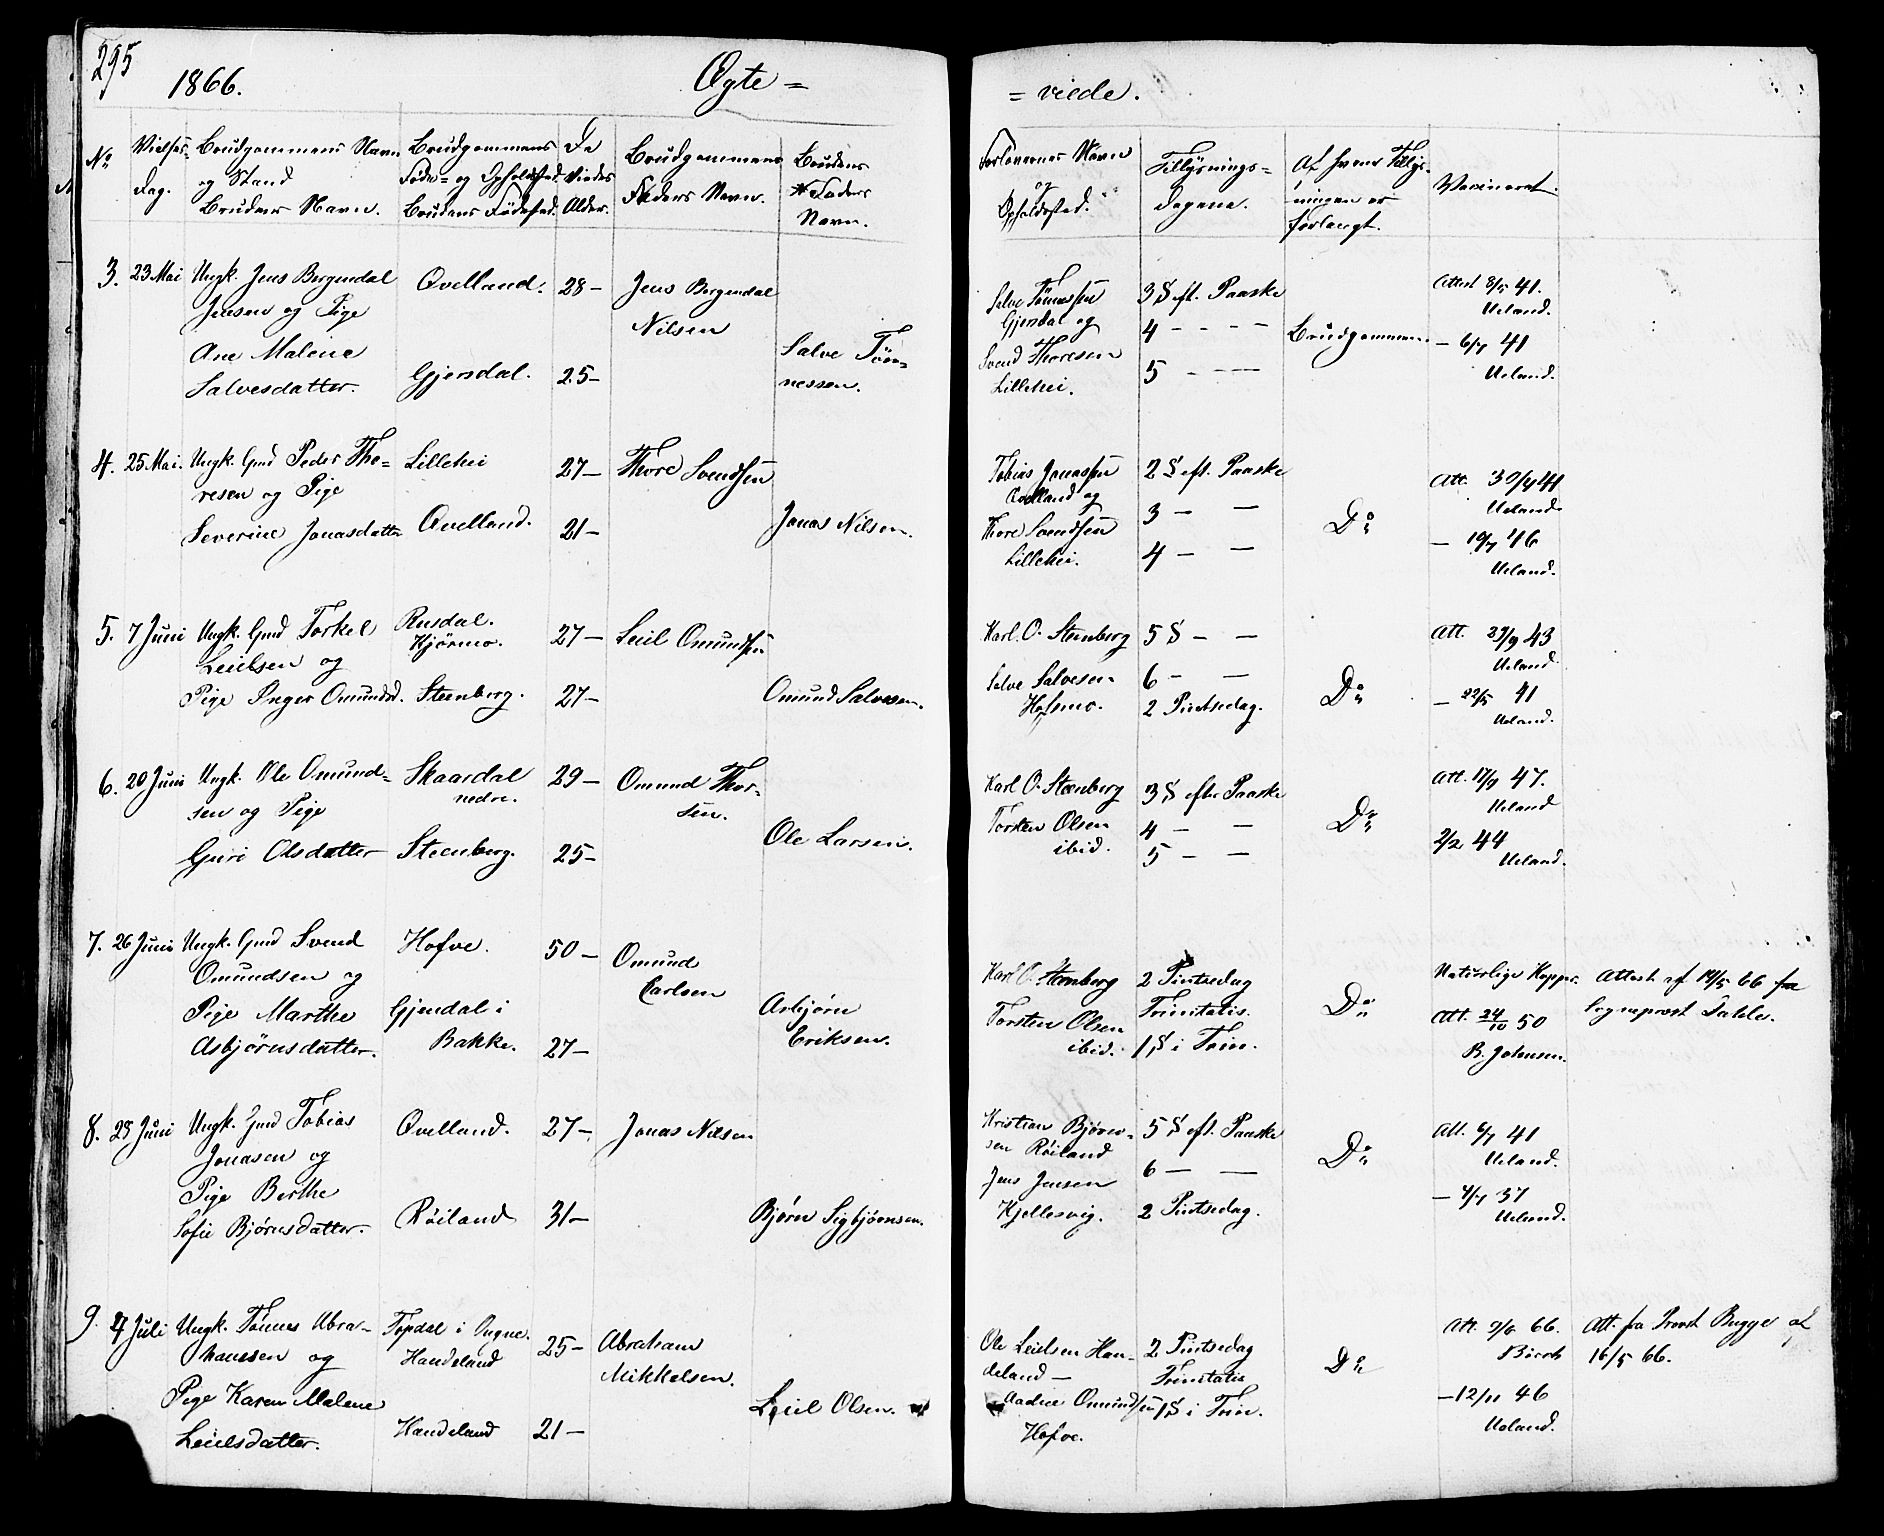 295
1866.
Ægte =
= viede.
No
Vielses-
dag.
Brudgommens Navn
og Stand
Brudens Navn.
Brudgommens
Føde- og Opholdssted.
Brudens Fødested.
De
Viedes
Alder.
Brudgommens
Faders Navn.
Brudens
Faders
Navn.
Forlovernes Navn
og
Opholdssted.
Tillysnings=
dagene.
Af hvem Tillys-
ningen er
forlangt.
Vaccineret.
3. 23 Mai Ungk. Jens Bergendal
Jensen og Pige
Ane Malene
Salvesdatter.
Qvelland. 28 -
Gjersdal. 25 -
Jens Bergendal
Nilsen
Salve Tøn=
nessen.
Salve Tønnessen
Gjersdal og
Svend Thoresen
Lillehei.
3 S eft. Paaske
4 - - - -
5 - - - -
Brudgommen
Attest 8/5 41.
Ueland.
- 6/7 41
Ueland.
4. 25 Mai. Ungk. Gmd Peder Tho=
resen og Pige
Severine Jonasdatter
Lillehei 27 -
Qvelland. 21 -
Thore Svendsen
Jonas Nilsen.
Tobias Jonassen
Qvelland og
Thore Svendsen
Lillehei.
2 S eft. Paaske
3 - -
4 - -
Do
Att. 30/4 41
Ueland.
- 19/7 46
Ueland.
5. 7 Juni Ungk. Gmd Torkel
Leielsen og
Pige Inger Omundsd.
Rusdal.
Kjørmo. 27 -
Steenberg. 27 -
Leiel Omundsen
Omund Salvesen.
Karl O. Steenberg
Salve Salvesen
Hofsmo.
5 S - -
6 - -
2 Pintsedag.
Do
Att. 29/9 43
Ueland
- 22/5 41
Ueland.
6. 20 Juni Ungk. Ole Omund=
sen og Pige
Guri Olsdatter
Skaardal
nedre. 29 -
Steenberg. 25 -
Omund Thor-
sen.
Ole Larsen.
Karl O. Steenberg
Torsten Olsen
ibid.
3 S efter Paaske
4 - -
5 - -
Do
Att. 17/9 47.
Ueland
2/2 44
Ueland.
7. 26 Juni Ungk. Gmd Svend
Omundsen og
Pige Marthe
Asbjørnsdatter.
Hofve. 50 -
Gjendal i
Bakke. 27 -
Omund
Carlsen
Asbjørn
Eriksen.
Karl O. Steenberg
Torsten Olsen
ibid.
2 Pintsedag
Trinitatis.
1 S i Trin.
Do
Naturlige Kopper.
Att. 24/10 50
B. Johnsen.
Attest af 14/5 66 fra
Sogneprest Dahle.
8. 28 Juni Ungk. Gmd Tobias
Jonasen og
Pige Berthe
Sofie Bjørnsdatter.
Qvelland. 27 -
Røiland 31 -
Jonas Nilsen
Bjørn Sigbjørnsen.
Kristian Bjørn-
sen Røiland
Jens Jensen
Kjellesvig.
5 S eft. Paaske
6 - -
2 Pintsedag.
Do
Att. 6/7 41
Ueland.
- 4/7 37
Ueland.
9. 4 Juli Ungk. Tønnes Abra-
hamsen og
Pige Karen Malene
Leielsdatter.
Topdal i
Handeland 25 -
Handeland 21 -
Abraham
Mikkelsen.
Leiel Olsen.
Ole Leielsen Han-
deland -
Omundsen
Hofve.
2 Pintsedag
Trinitatis
1 S i Trin.
Do
Att. 66.
- 12/11 46
Ueland.
Att. fra Provst Bugge af
16/5 66.